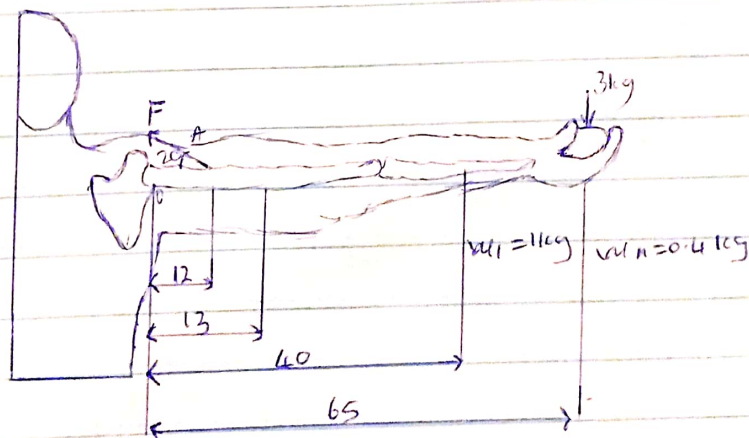 3kg
F
A
20
0
W1 = 1kg
WH = 0.4kg
12
13
40
65